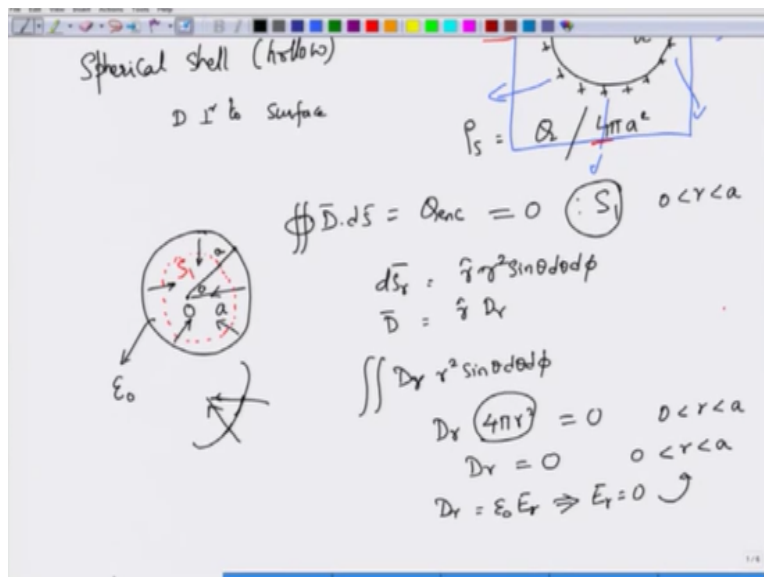 Spherical shell (hollow)
D ⊥r to surface
ρs = Q / 4πa²
∯ D̄.ds̄ = Qenc = 0 : S₁ 0 < r < a
ds̄r = r̂ r² sinθ dθ dφ
D̄ = r̂ Dr
∬ Dr r² sinθ dθ dφ
Dr 4πr² = 0 0 < r < a
Dr = 0 0 < r < a
Dr = ε₀ Er ⇒ Er = 0
S₁
a
0
a
ε₀
+ + + + + + +
1/6